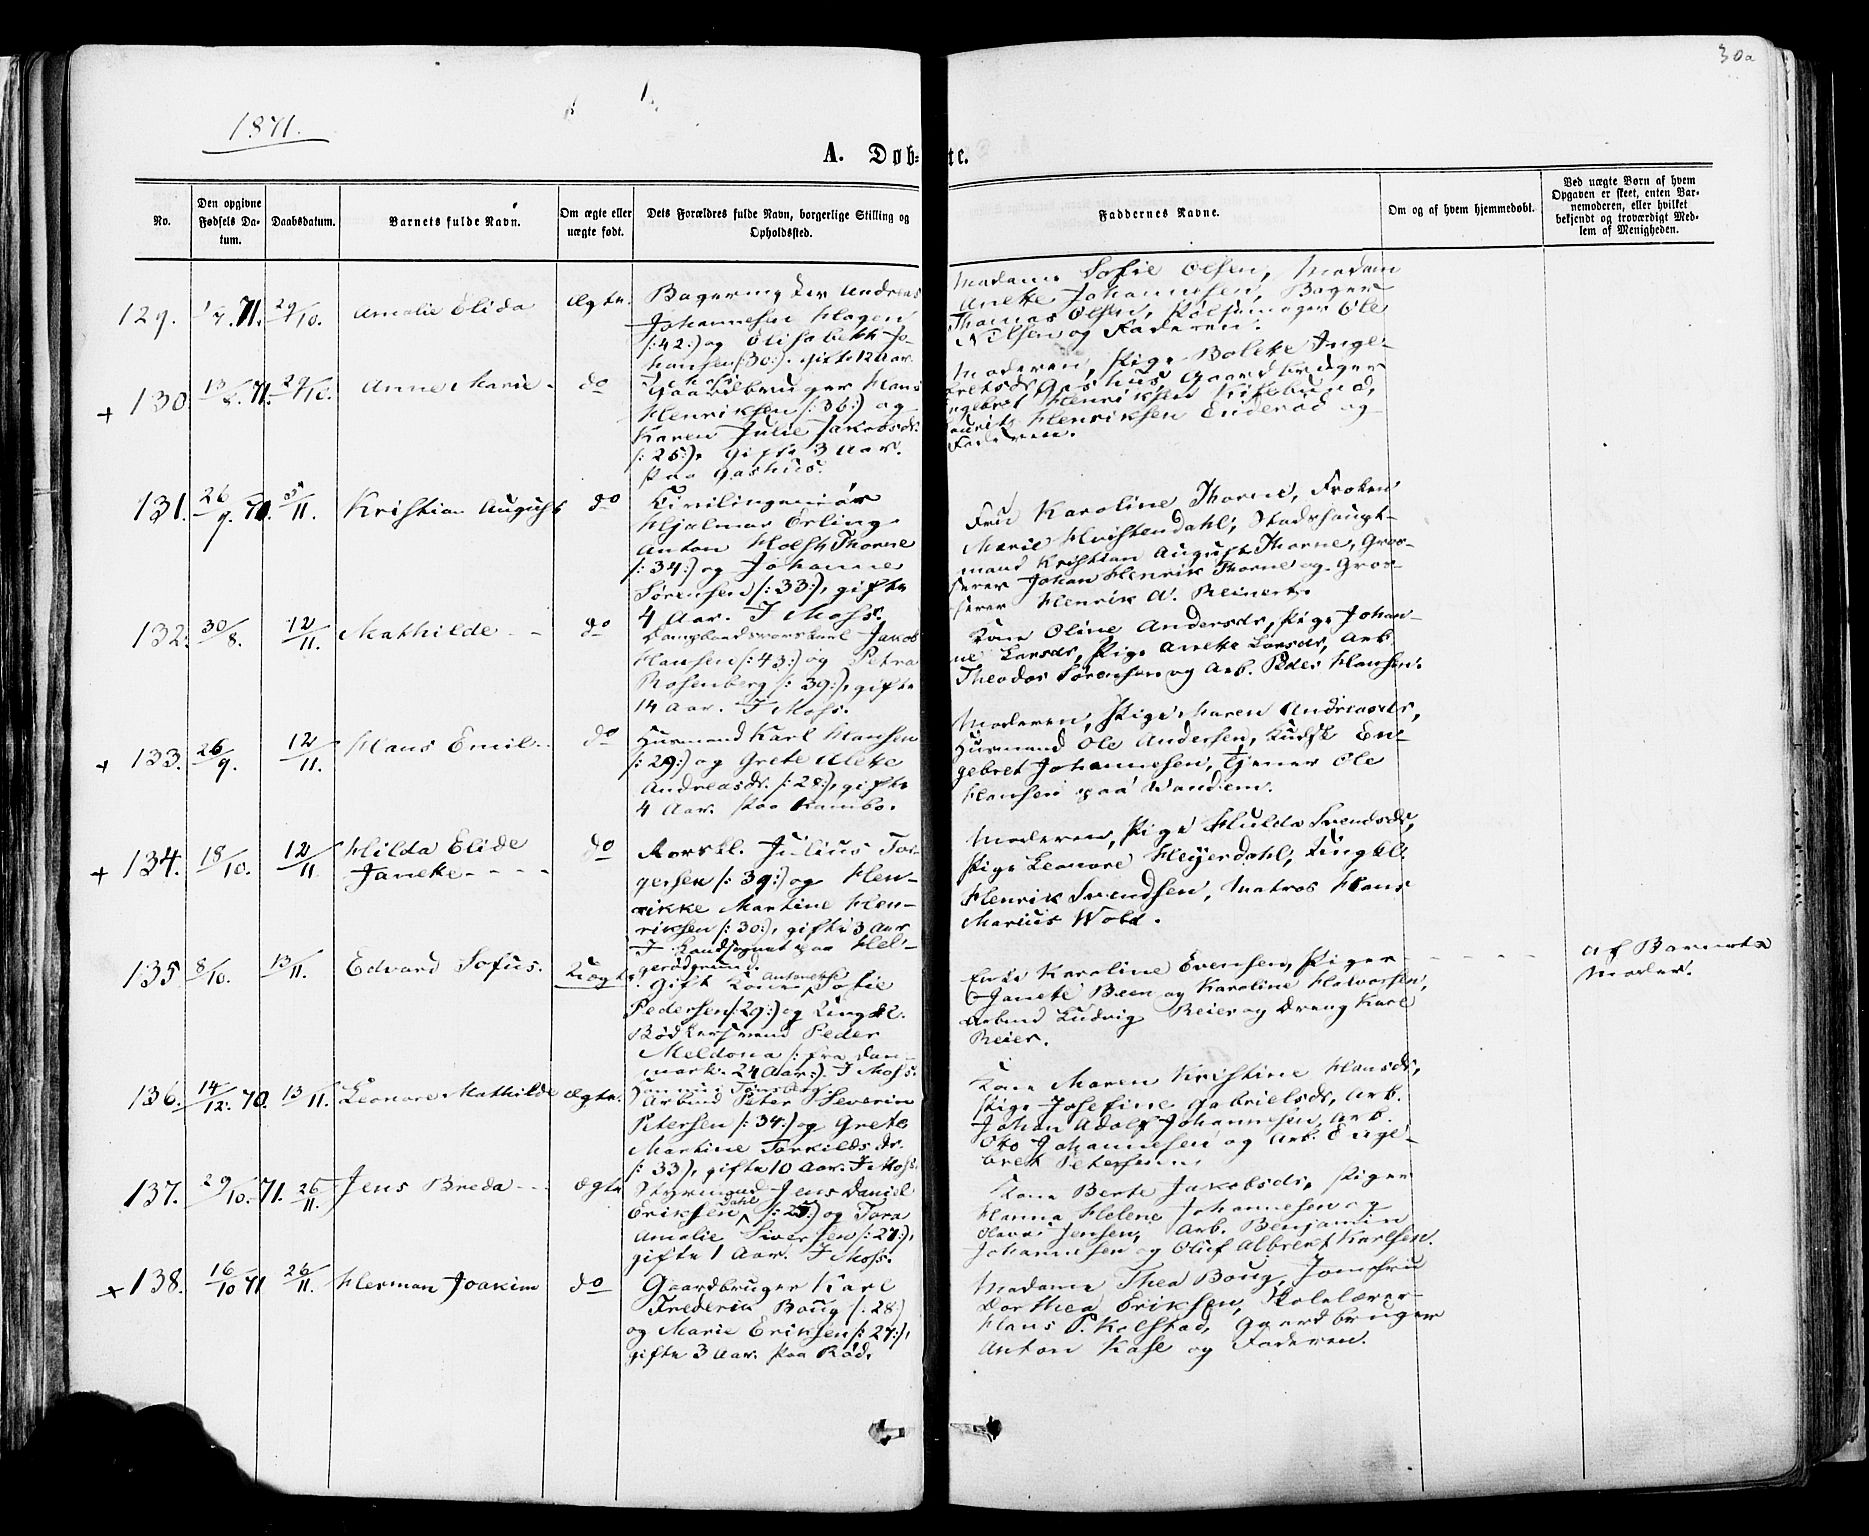 30a
1871.
A. Døb-te.
No.
Den opgivne Fødsels Datum.
Daabsdatum.
Barnets fulde Navn.
Om ægte eller uægte født.
Dets Forældres fulde Navn, borgerlige Stilling og Opholdssted.
Faddernes Navne.
Om og af hvem hjemmedøbt.
Ved uægte Børn af hvem Opgaven er skeet, enten Barnemoderen, eller hvilket bekjendt og troværdigt Medlem af Menigheden.
129. 71. 29/10. Amalie Elida Ægte.
Bagermester Andreas
Johannesen Hagen
(:42:) og Elisabeth Jo-
hansen (:30:). gifte 12 Aar.
I Moss
Madame Sofie Olsen, Madam
Anette Johannesen, Bager
Thomas Olsen, Pølsemager Ole
Nilsen og Faderen.
+ 130. 13/8. 71. 29/10. Anne Marie do
Gaardbruger Hans
Henriksen (:36:) og
Karen Julie Jakobsdr.
(:25:), gifte 3 Aar.
paa Gashus.
Moderen, Pige Bolette Inge-
bretsdr Gashus, Gaardbruger
Engebret Henriksen Kippebund,
Laurits Henriksen Enderød og
Faderen.
131. 26/9. 71. 5/11. Kristian August do
Civilingeniør
Hjalmar Erling
Anton Holst Thorne
(:34:) og Johanne
Sørensen (:33:), gifte
4 Aar. I Moss.
Fru Karoline Thorne, Frøken
Marie Hvistendahl, Stadshaupt-
mand Kristian August Thorne, Gros-
serer Johan Henrik Thorne og Gros-
serer Henrik A. Reinert.
132. 30/8. 12/11. Mathilde do
Jakob
Hansen (:43:) og Petra
Rosenberg (:39:), gifte
14 Aar. I Moss.
Kone Oline Andersdr, Pige Johan-
ne Larsdr, Pige Anette Larsdr, Arb.
Theodor Sørensen og Arb. Peder Hansen.
+ 133. 26/9. 12/11. Hans Emil do
Husmand Karl Hansen
(:29:) og Grete Alette
Andreasdr. (:28:), gifte
4 Aar. paa Kambo.
Moderen, Pige Karen Andreasdr,
Husmand Ole Andersen, Kudsk En-
gebret Johannesen, Tjener Ole
Hansen paa Vandem.
+ 134. 18/10. 12/11. Hilda Elide do
Janette
Rorskl. Julius Tor-
gersen (:39:) og Hen-
rikke Martine Hen-
riksen (:30:), gifte 3 Aar
I Landsognet paa Hel-
gerødgrund.
Moderen, Pige Hulda Svendsdr,
Pige Leonore Heyerdahl, Ungkl.
Henrik Svendsen, Matros Hans
Marius Wold.
135 8/10. 13/11. Edvard Sofus. Uægte
Gift Kone Antonette Sofie
Pedersen (:29:) og Ungkl.
Bødkersvend Peder
Meldona (: fra Dan-
mark. 24 Aar:). I Moss.
Enke Karoline Evensen, Piger
Janete Been og Karoline Halvorsen,
Arbmd Ludvig Reier og Dreng Karl
Reier.
af Barnets
Moder.
136. 14/12. 70. 13/11. Leonore Mathilde Ægte.
Arbmd Peter Severin
Petersen (:34:) og Grete
Martine Torkildsdr.
(:33:), gifte 10 Aar. I Moss.
Kone Maren Kristine Hansdr,
Pige Josefine Gabrielsdr, Arb.
Johan Adolf Johannesen, Arb.
Otto Johannesen og Arb. Enge-
bret Petersen.
137. 29/10. 71. 26/11. Jens Breda Ægte
Styrmand Jens Daniel
Eriksen Dahl (:25:) og Tora
Amalie Siversen (:27:),
gifte 1 Aar. I Moss.
Kone Berte Jakobsdr, Piger
Hanna Helene Johannesen og
Jensen, Arb. Benjamin
Johannesen og Oluf Albret Karlsen.
+ 138. 16/10 71 26/11. Herman Joakim do
Gaardbruger Karl
Frederik Boug (:28:)
og Marie Eriksen (:27:),
gifte 3 Aar. paa Rød.
Madame Thea Boug, Jomfru
Dorthea Eriksen, Skolelærer
Hans P. Kolstad, Gaardbruger
Anton Kase og Faderen.